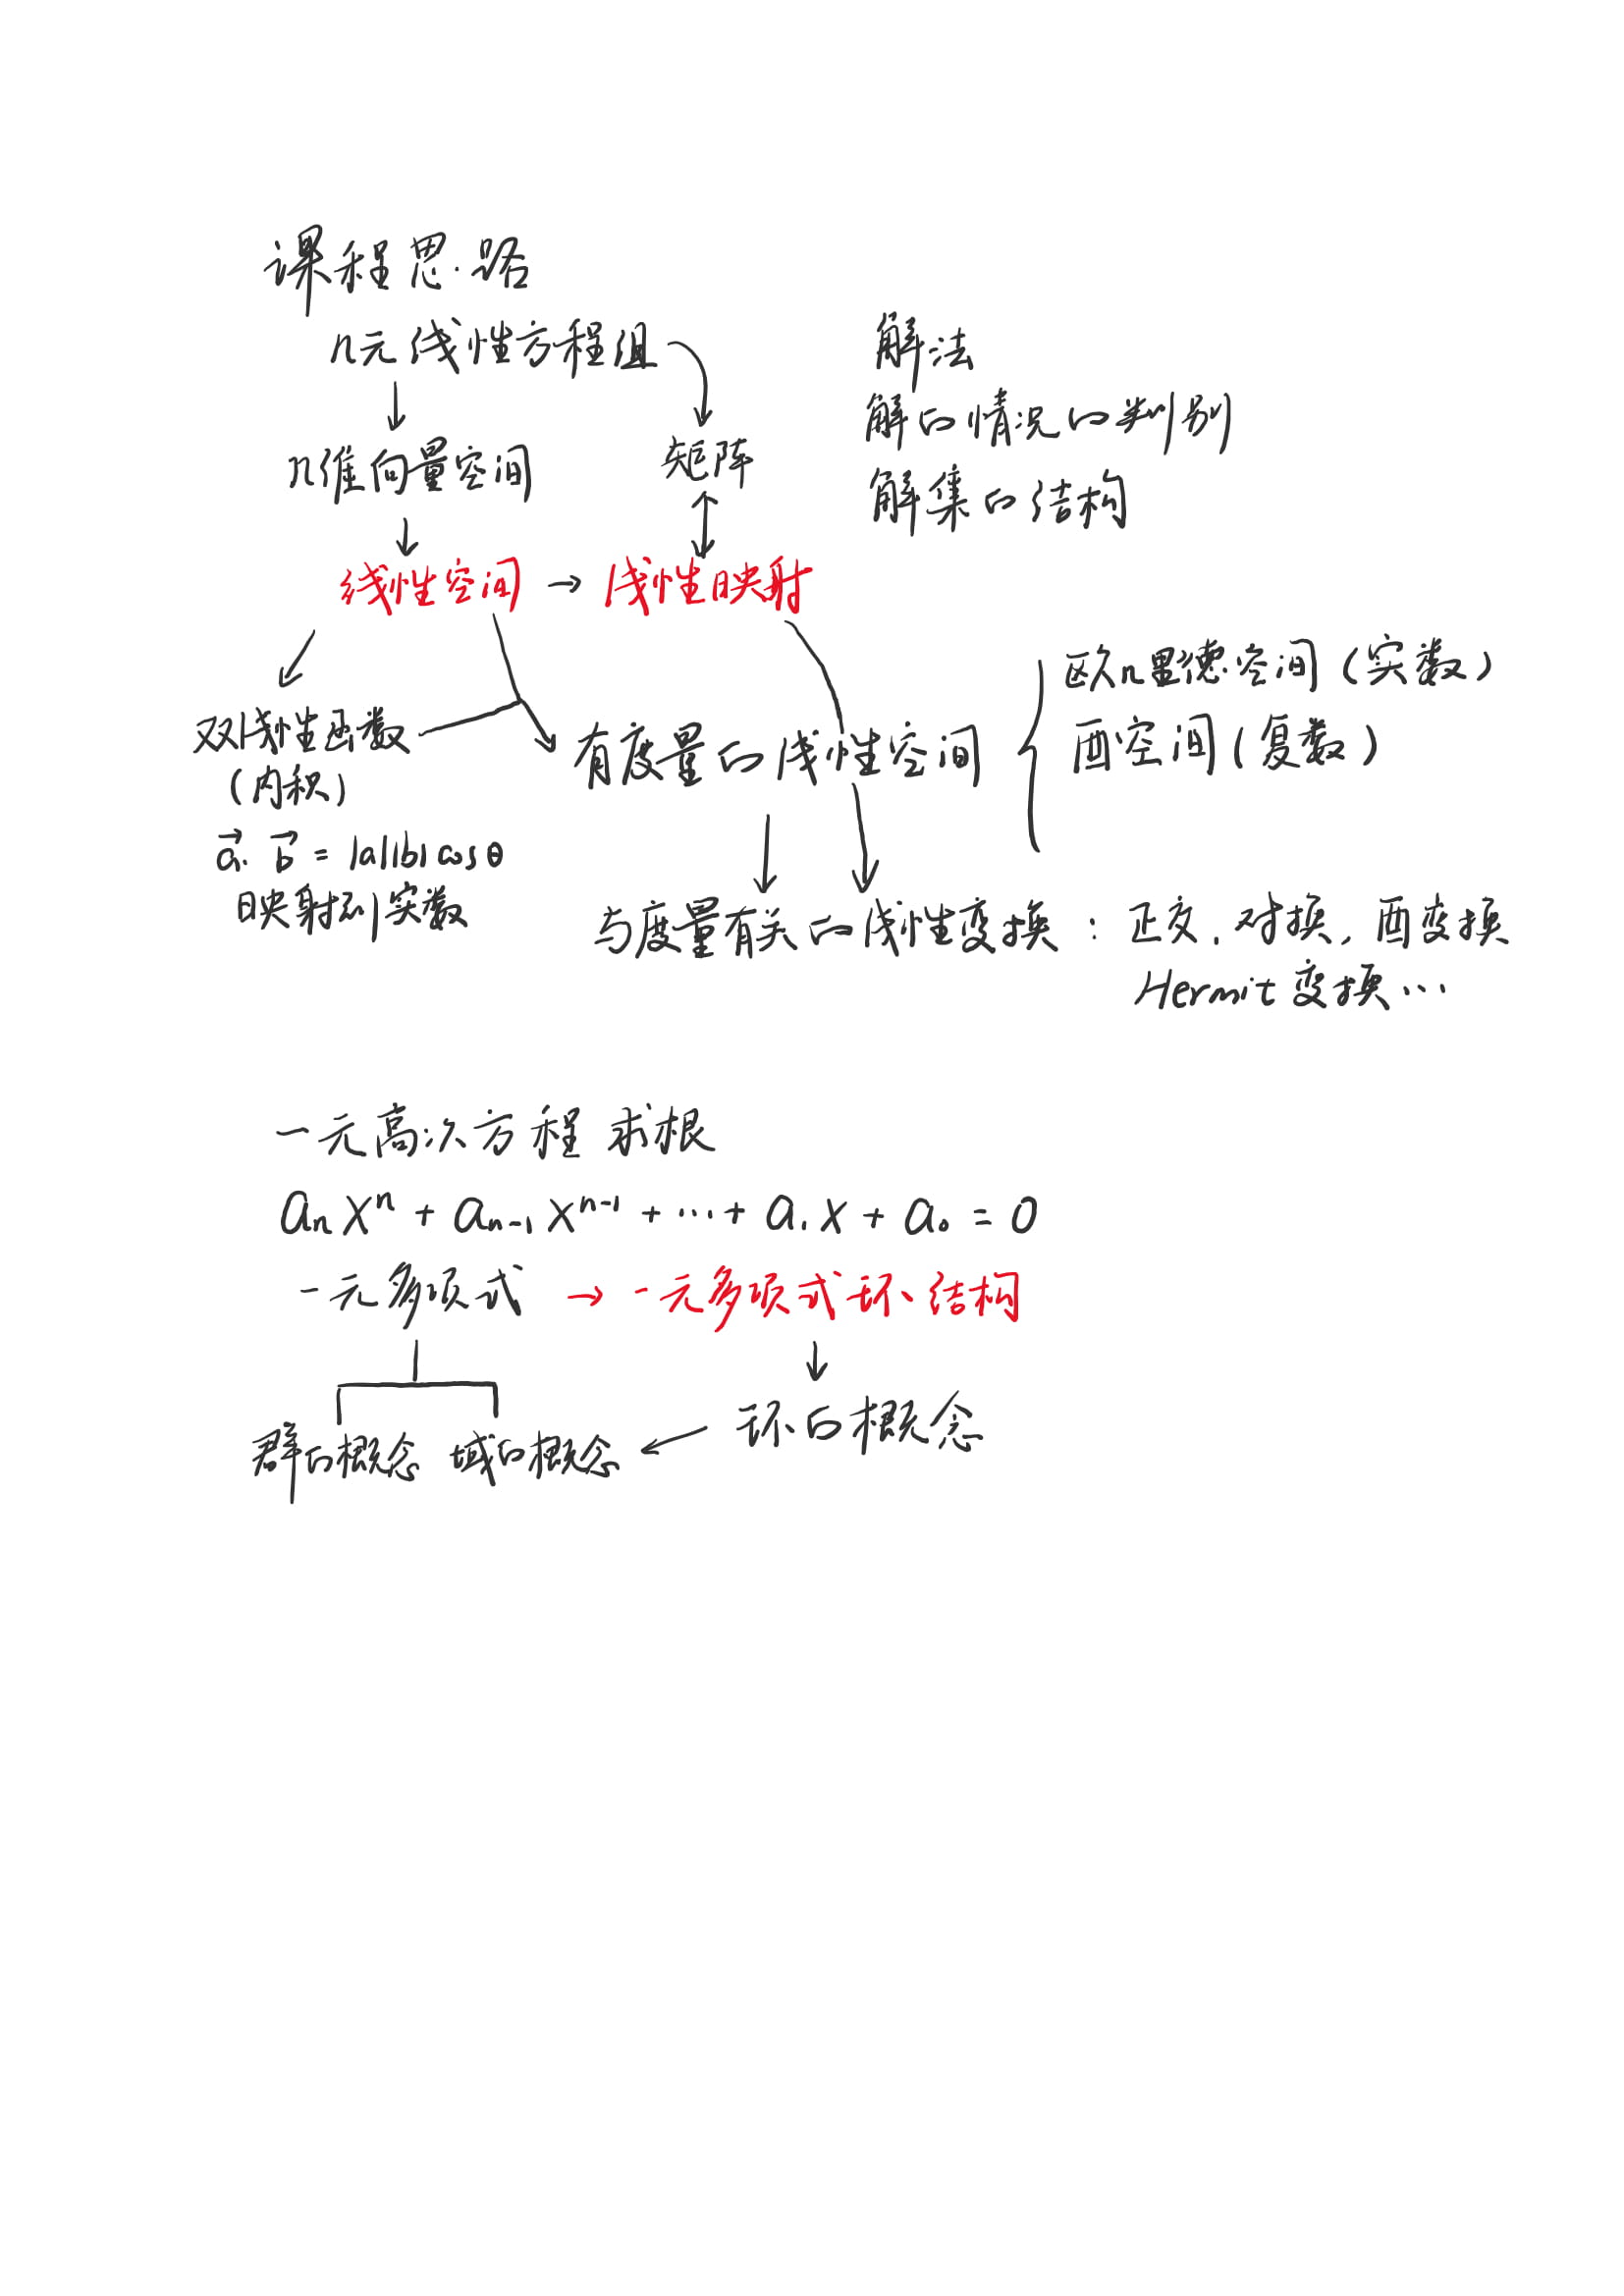 课程思路
n元线性方程组
解法
解的情况的判别
n维向量空间
矩阵
解集的结构
线性空间 → 线性映射
欧几里德空间（实数）
酉空间（复数）
双线性函数
（内积）
有度量的线性空间
a⃗. b⃗ = |a||b| cos θ
映射到实数
与度量有关的线性变换：正交, 对换, 酉变换
Hermit变换…
一元高次方程 求根
aₙxⁿ + aₙ₋₁xⁿ⁻¹ + ⋯ + a₁x + a₀ = 0
一元多项式 → 一元多项式环结构
环的概念
群的概念 域的概念